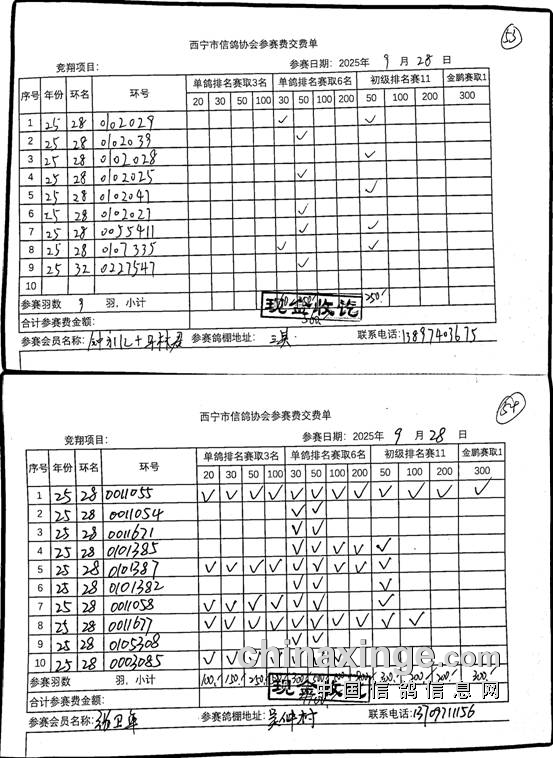 53
西宁市信鸽协会参赛费交费单
竞翔项目： 参赛日期：2025年 9 月 28 日
序号 年份 环名 环号 单鸽排名赛取3名 单鸽排名赛取6名 初级排名赛11 金鹏赛取1
20 30 50 100 30 50 100 200 50 100 200 300
1 25 28 0102029 ✓ ✓
2 25 28 0102039 ✓
3 25 28 0102028 ✓
4 25 28 0102025 ✓
5 25 28 0102047 ✓
6 25 28 0102027 ✓
7 25 28 0055411 ✓ ✓
8 25 28 0107335 ✓ ✓
9 25 32 0227547 ✓
10
参赛羽数 9 羽，小计 250
合计参赛费金额：
现金收讫
参赛会员名称： 参赛鸽棚地址： 联系电话：13897403675
54
西宁市信鸽协会参赛费交费单
竞翔项目： 参赛日期：2025年 9 月 28 日
序号 年份 环名 环号 单鸽排名赛取3名 单鸽排名赛取6名 初级排名赛11 金鹏赛取1
20 30 50 100 30 50 100 200 50 100 200 300
1 25 28 0011055 ✓ ✓ ✓ ✓ ✓ ✓ ✓ ✓ ✓ ✓ ✓ ✓
2 25 28 0011054 ✓ ✓
3 25 28 0011671 ✓ ✓
4 25 28 0101385 ✓ ✓ ✓ ✓ ✓
5 25 28 0101387 ✓ ✓ ✓ ✓ ✓ ✓ ✓ ✓ ✓
6 25 28 0101382 ✓ ✓ ✓
7 25 28 0011058 ✓ ✓ ✓ ✓ ✓ ✓
8 25 28 0011677 ✓ ✓ ✓ ✓ ✓ ✓ ✓ ✓ ✓ ✓
9 25 28 0105308 ✓ ✓
10 25 28 0003085 ✓ ✓ ✓
chinaxinge.com
参赛羽数 羽，小计 100 150 250 300 200 200 300
中国信鸽信息网
合计参赛费金额：
现金收讫
参赛会员名称：张卫军 参赛鸽棚地址：吴仲村 联系电话：13709711156